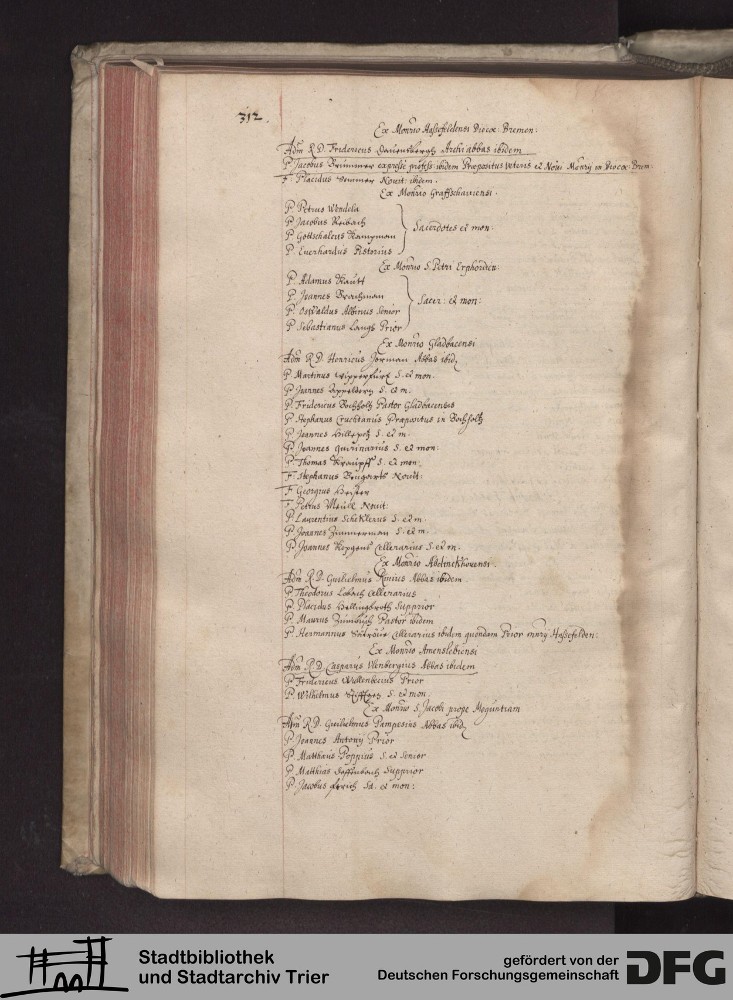 312.
Ex Monrio Hassefeldensi Diocæ: Bremen:
Adm R.D. Fridericus Archiabbas ibidem
P. Jacobus Brummer expresse profess. ibidem Præpositus veteris et Novi Monrij in Diocæ Brem:
F. Placidus Novit. ibidem.
Ex Monrio Graffschaviensi.
P. Petrus Wendela
P. Jacobus Reibach
P. Gottschalcus
P. Everhardus Pistorius
Sacerdotes et mon:
Ex Monrio S. Petri Erphorden:
P. Adamus
P. Joannes
P. Oswaldus Albinus Senior
P. Sebastianus Lange Prior
Sacer: et mon:
Ex Monrio Gladbacensi
Adm R.D. Henricus Abbas ibid.
P. Martinus Wipperfürt S. et mon.
P. Joannes S. et m.
P. Fridericus Bochholtz Pastor Gladbacensis
P. Stephanus Cruchtanus Præpositus in Bochholtz
P. Joannes S. et m.
P. Joannes Quirinarius S. et mon:
P. Thomas S. et mon.
F. Stephanus Novit:
F. Georgius
F. Petrus Novit:
P. Laurentius S. et m.
P. Joannes Zimmerman S. et m.
P. Joannes Cellerarius S. et m.
Ex Monrio Abdinckhovensi.
Adm R.D. Guilielmus Rinius Abbas ibidem
P. Theodorus Lobach Cellerarius
P. Placidus Supprior
P. Maurus Pastor ibidem
P. Hermannus Cellerarius ibidem quondam Prior mnrij Hassefelden:
Ex Monrio Amenslebiensi
Adm R.D. Casparus Ulenbergius Abbas ibidem
P. Fridericus Prior
P. Wilhelmus S. et mon.
Ex Monrio S. Jacobi prope Moguntiam
Adm R.D. Guilielmus Pampesius Abbas ibid.
P. Joannes Antonij Prior
P. Matthæus Poppius S. et Senior
P. Matthias Supprior
P. Jacobus Sa. et mon:
Stadtbibliothek
und Stadtarchiv Trier
gefördert von der
Deutschen Forschungsgemeinschaft
DFG